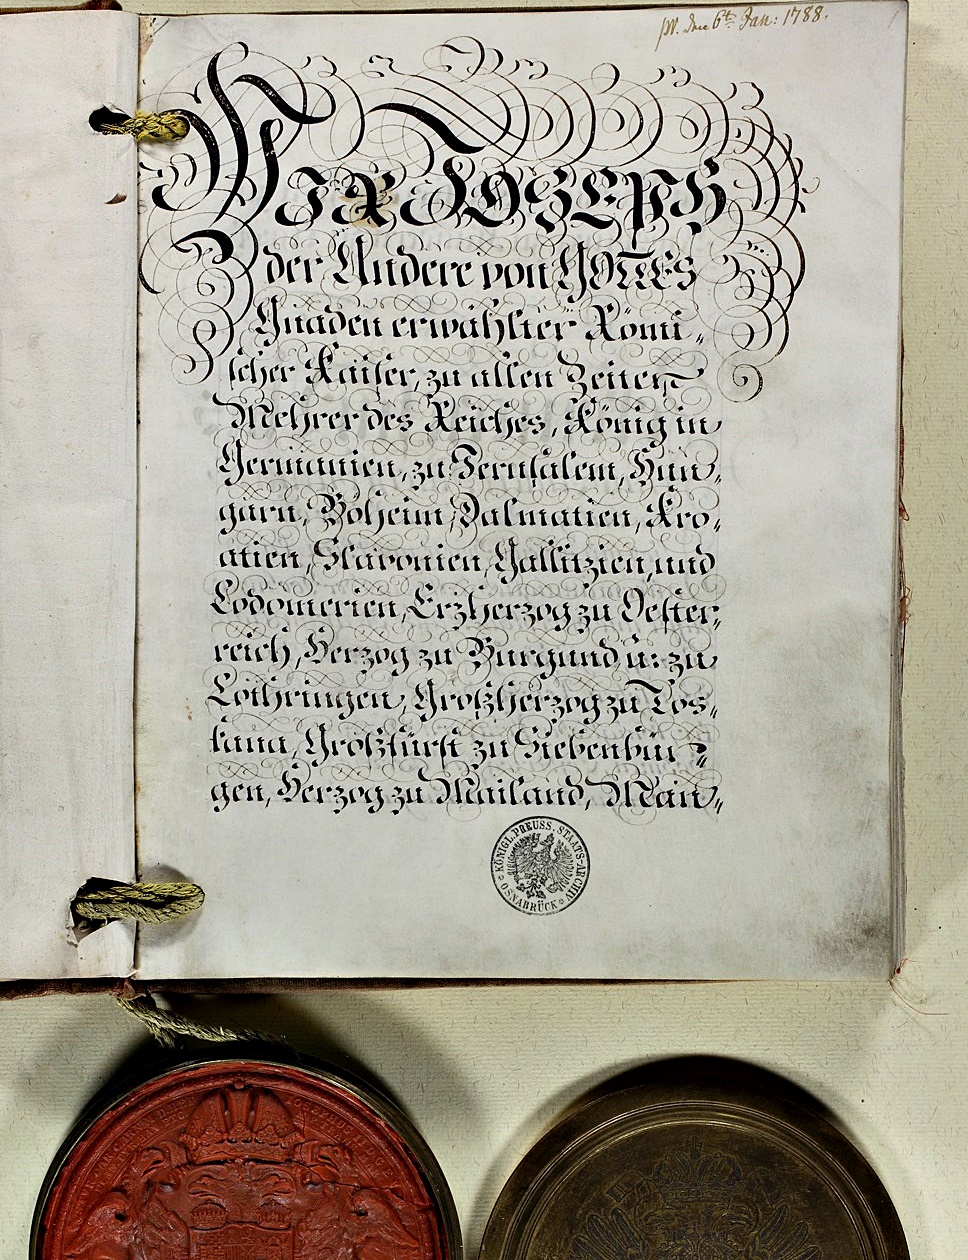 pr. den 6ten Jan: 1788.
Wir Joseph
der Andere von GOTTES
Gnaden erwählter Römi„
scher Kaiser, zu allen Zeiten
Mehrer des Reiches, König in
Germanien, zu Jerusalem, Hun„
garn, Boheim, Dalmatien, Kro„
atien, Slavonien, Gallitzien, und
Lodomerien, Erzherzog zu Oester„
reich, Herzog zu Burgund u: zu
Lothringen, Großherzog zu Tos„
kana, Großfürst zu Siebenbür„
gen, Herzog zu Mailand, Man„
KÖNIGL. PREUSS. STAATS-ARCHIV
OSNABRÜCK